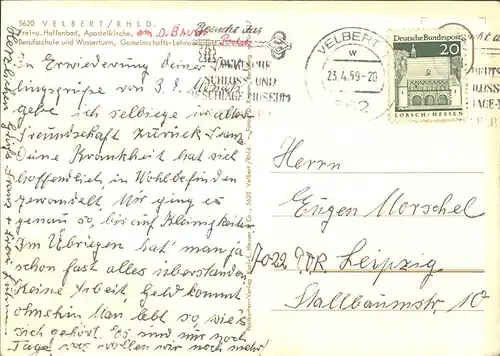 5620 VELBERT/RHLD.
Frei- u. Hallenbad, Apostelkirche,
Berufsschule und Wasserturm, Gemeinschafts-Lehrwerkstatt
Besuche das
DEUTSCHE
SCHLOSS- UND
BESCHLÄGEMUSEUM
VELBERT
w
23.4.69-20
562
Deutsche Bundespost
20
LORSCH/HESSEN
In Erwiederung Deiner
lingsgrüße von 3.
gebe ich selbige in aller
Freundschaft zurück
Deine Krankheit hat sich
hoffendlich, in Wohlbefinden
gewandelt. Mir ging es
genau so, bis auf Kleinigkeiten
Im Übriegen hat' man ja
schon fast alles überstanden
Keine Arbeit Geld kommt
ohnehin Man lebt so wie's
sich gehört. Es sind nur noch
Tage, was wollen wir noch mehr!
Herzlichen Gruß
Herrn
Eugen Morschel
7022 DDR Leipzig
Stallbaumstr. 10